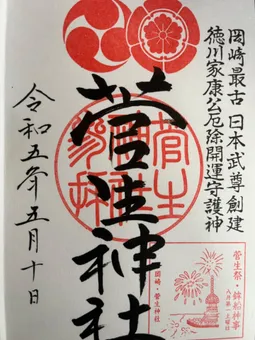 岡崎最古 日本武尊創建
徳川家康公厄除開運守護神
菅生神社
令和五年五月十日
菅生祭・鉾船神事
岡崎・菅生神社